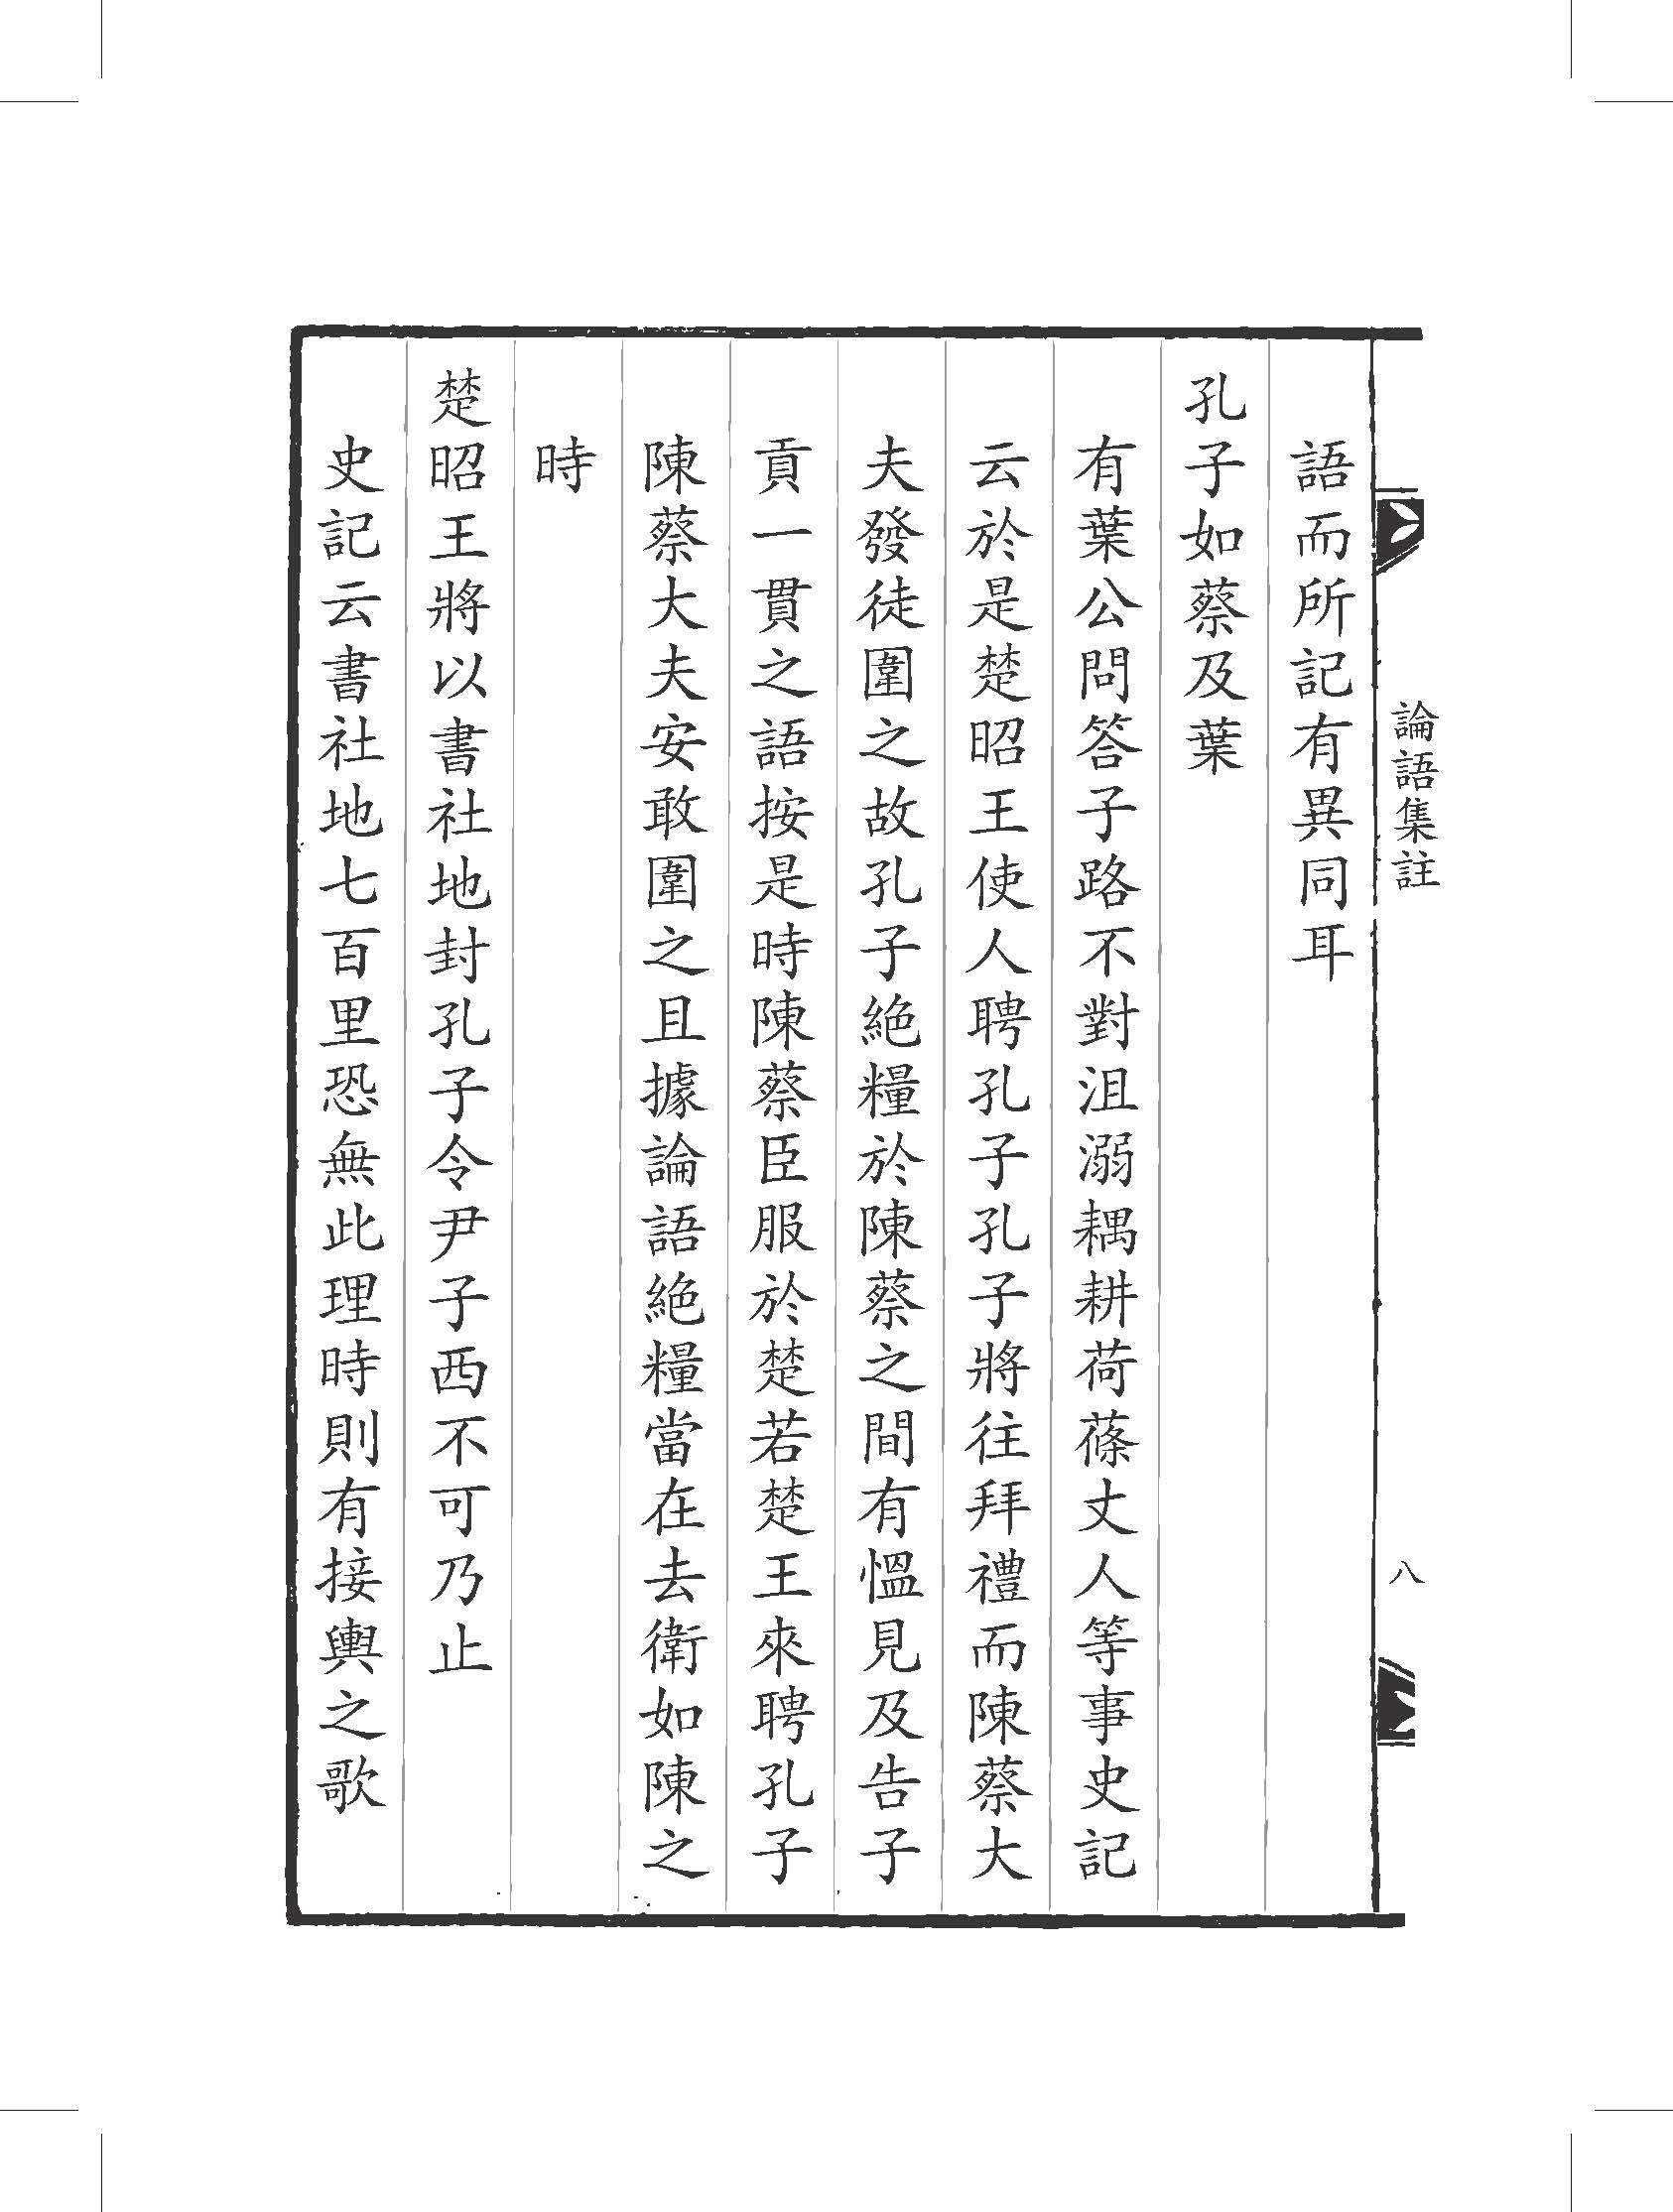 論語集註
八
語而所記有異同耳
孔子如蔡及葉
有葉公問答子路不對沮溺耦耕荷蓧丈人等事史記
云於是楚昭王使人聘孔子孔子將往拜禮而陳蔡大
夫發徒圍之故孔子絕糧於陳蔡之間有慍見及告子
貢一貫之語按是時陳蔡臣服於楚若楚王來聘孔子
陳蔡大夫安敢圍之且據論語絕糧當在去衛如陳之
時
楚昭王將以書社地封孔子令尹子西不可乃止
史記云書社地七百里恐無此理時則有接輿之歌